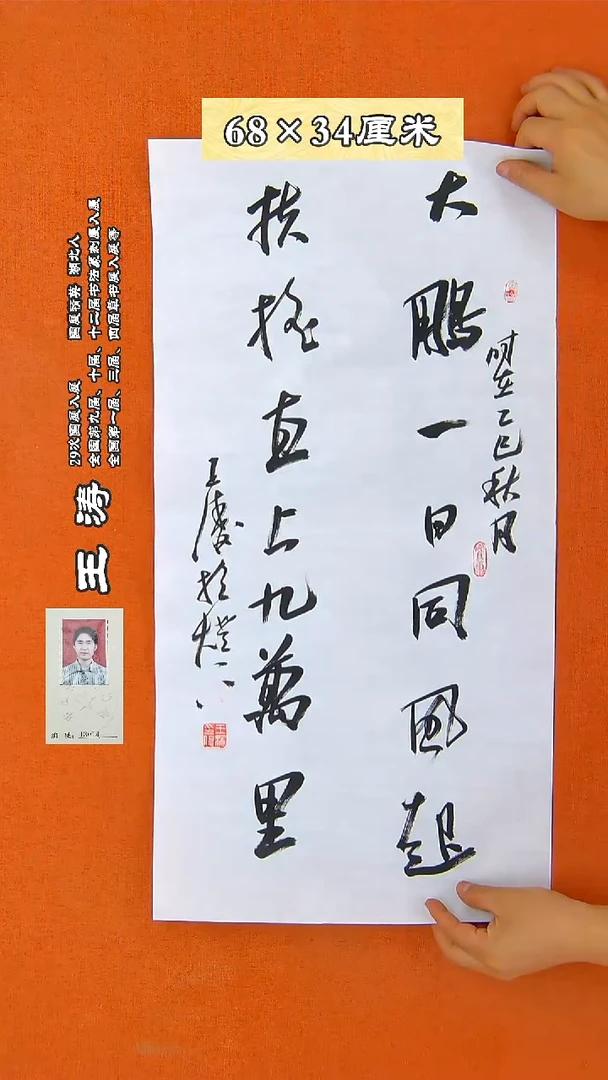 68×34厘米
大鹏一日同風起
扶摇直上九萬里
时在乙巳秋月
王涛
29次国展入展 国展精英 湖北人
全国第九届、十届、十二届书法篆刻展入展
全国第一届、三届、四届草书展入展等